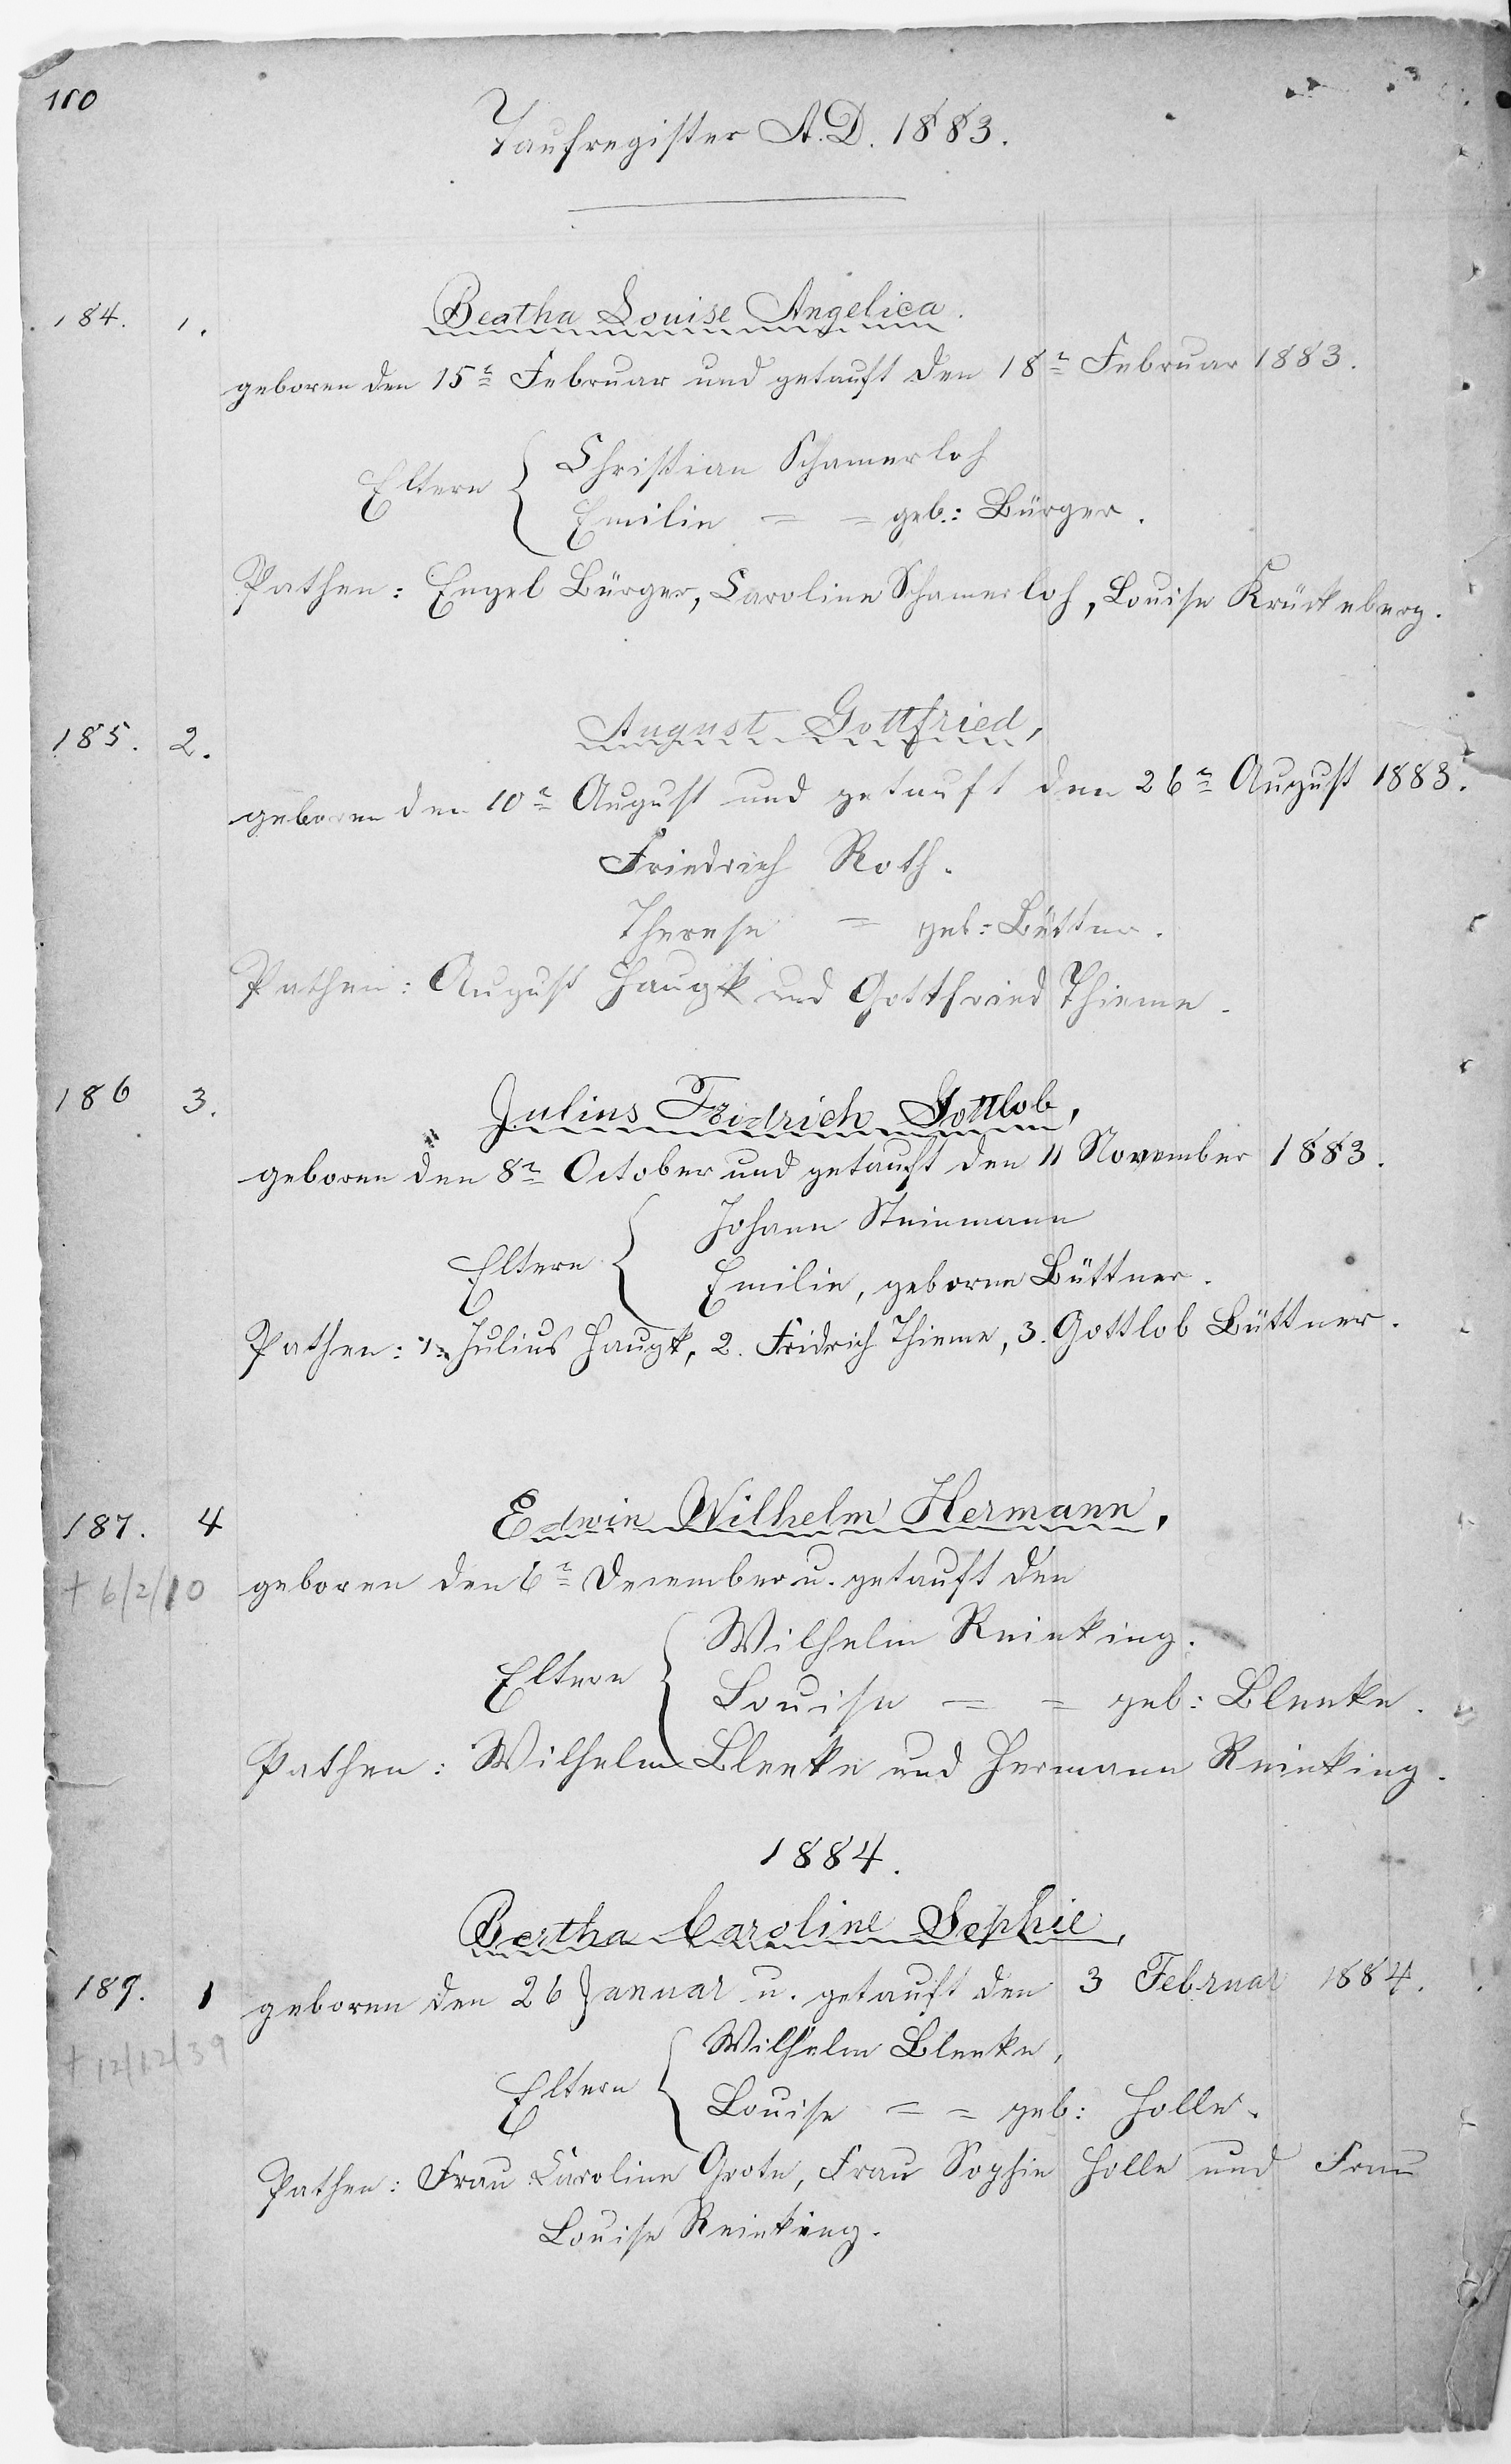 110
Taufregister A.D. 1883.
184. 1. Beatha Louise Angelica.
geboren den 15n Februar und getauft den 18n Februar 1883.
Eltern { Christian Schamerloh
Emilie = = geb.: Bürger.
Pathen: Engel Bürger, Caroline Schamerloh, Louise Krückeberg.
185. 2. August Gottfried,
geboren den 10n August und getauft den 26n August 1883.
Friedrich Roth.
Therese = geb: Büttner.
Pathen: August Haugk und Gottfried Thieme.
186 3. Julius Fridrich Gottlob,
geboren den 8n October und getauft den 11 November 1883.
Eltern { Johann Steinmann
Emilie, geborne Büttner.
Pathen: 1. Julius Haugk, 2. Fridrich Thieme, 3. Gottlob Büttner.
187. 4 Edwin Wilhelm Hermann,
+ 6/2/10 geboren den 6n December u. getauft den
Eltern { Wilhelm Reinking.
Louise = = geb: Bleeke.
Pathen: Wilhelm Bleeke und Hermann Reinking.
1884.
Bertha Caroline Sophie,
189. 1 geboren den 26 Januar u. getauft den 3 Februar 1884.
+ 12/12/39
Eltern { Wilhelm Bleeke,
Louise = = geb: Holle.
Pathen: Frau Caroline Grote, Frau Sophie Holle und Frau
Louise Reinking.